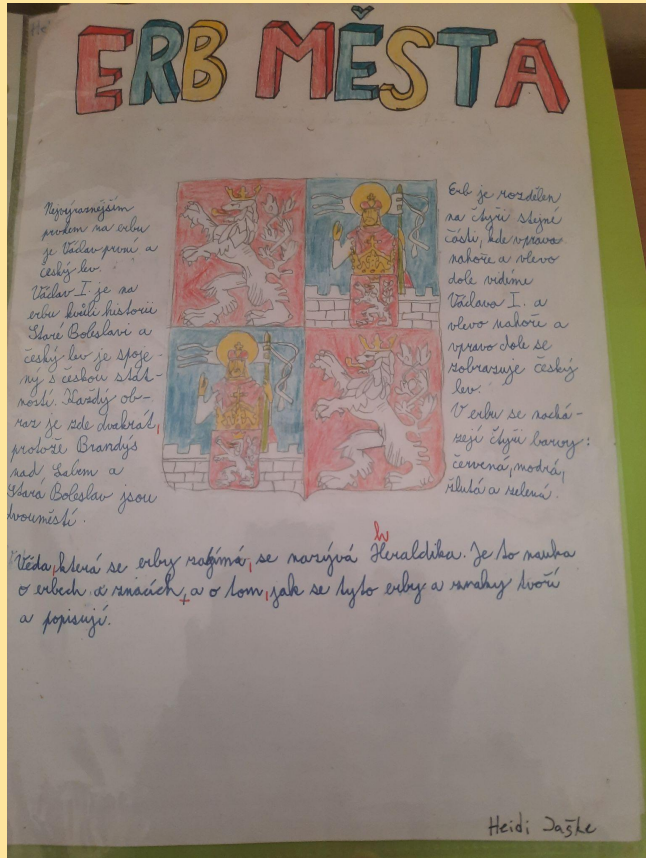 ERB MĚSTA
Nejvýraznějším
prvkem na erbu
je Václav první a
český lev.
Václav I. je na
erbu kvůli historii
Staré Boleslavi a
český lev je spoje-
ný s českou stát-
ností. Každý ob-
raz je zde dvakrát,
protože Brandýs
nad Labem a
Stará Boleslav jsou
dvouměstí.
Erb je rozdělen
na čtyři stejné
části, kde vpravo
nahoře a vlevo
dole vidíme
Václava I. a
vlevo nahoře a
vpravo dole se
zobrazuje český
lev.
V erbu se nachá-
zejí čtyři barvy:
červená, modrá,
žlutá a zelená.
h
Věda, která se erby zabývá, se nazývá Heraldika. Je to nauka
o erbech a znacích, a o tom, jak se tyto erby a znaky tvoří
a popisují.
Heidi Jaške